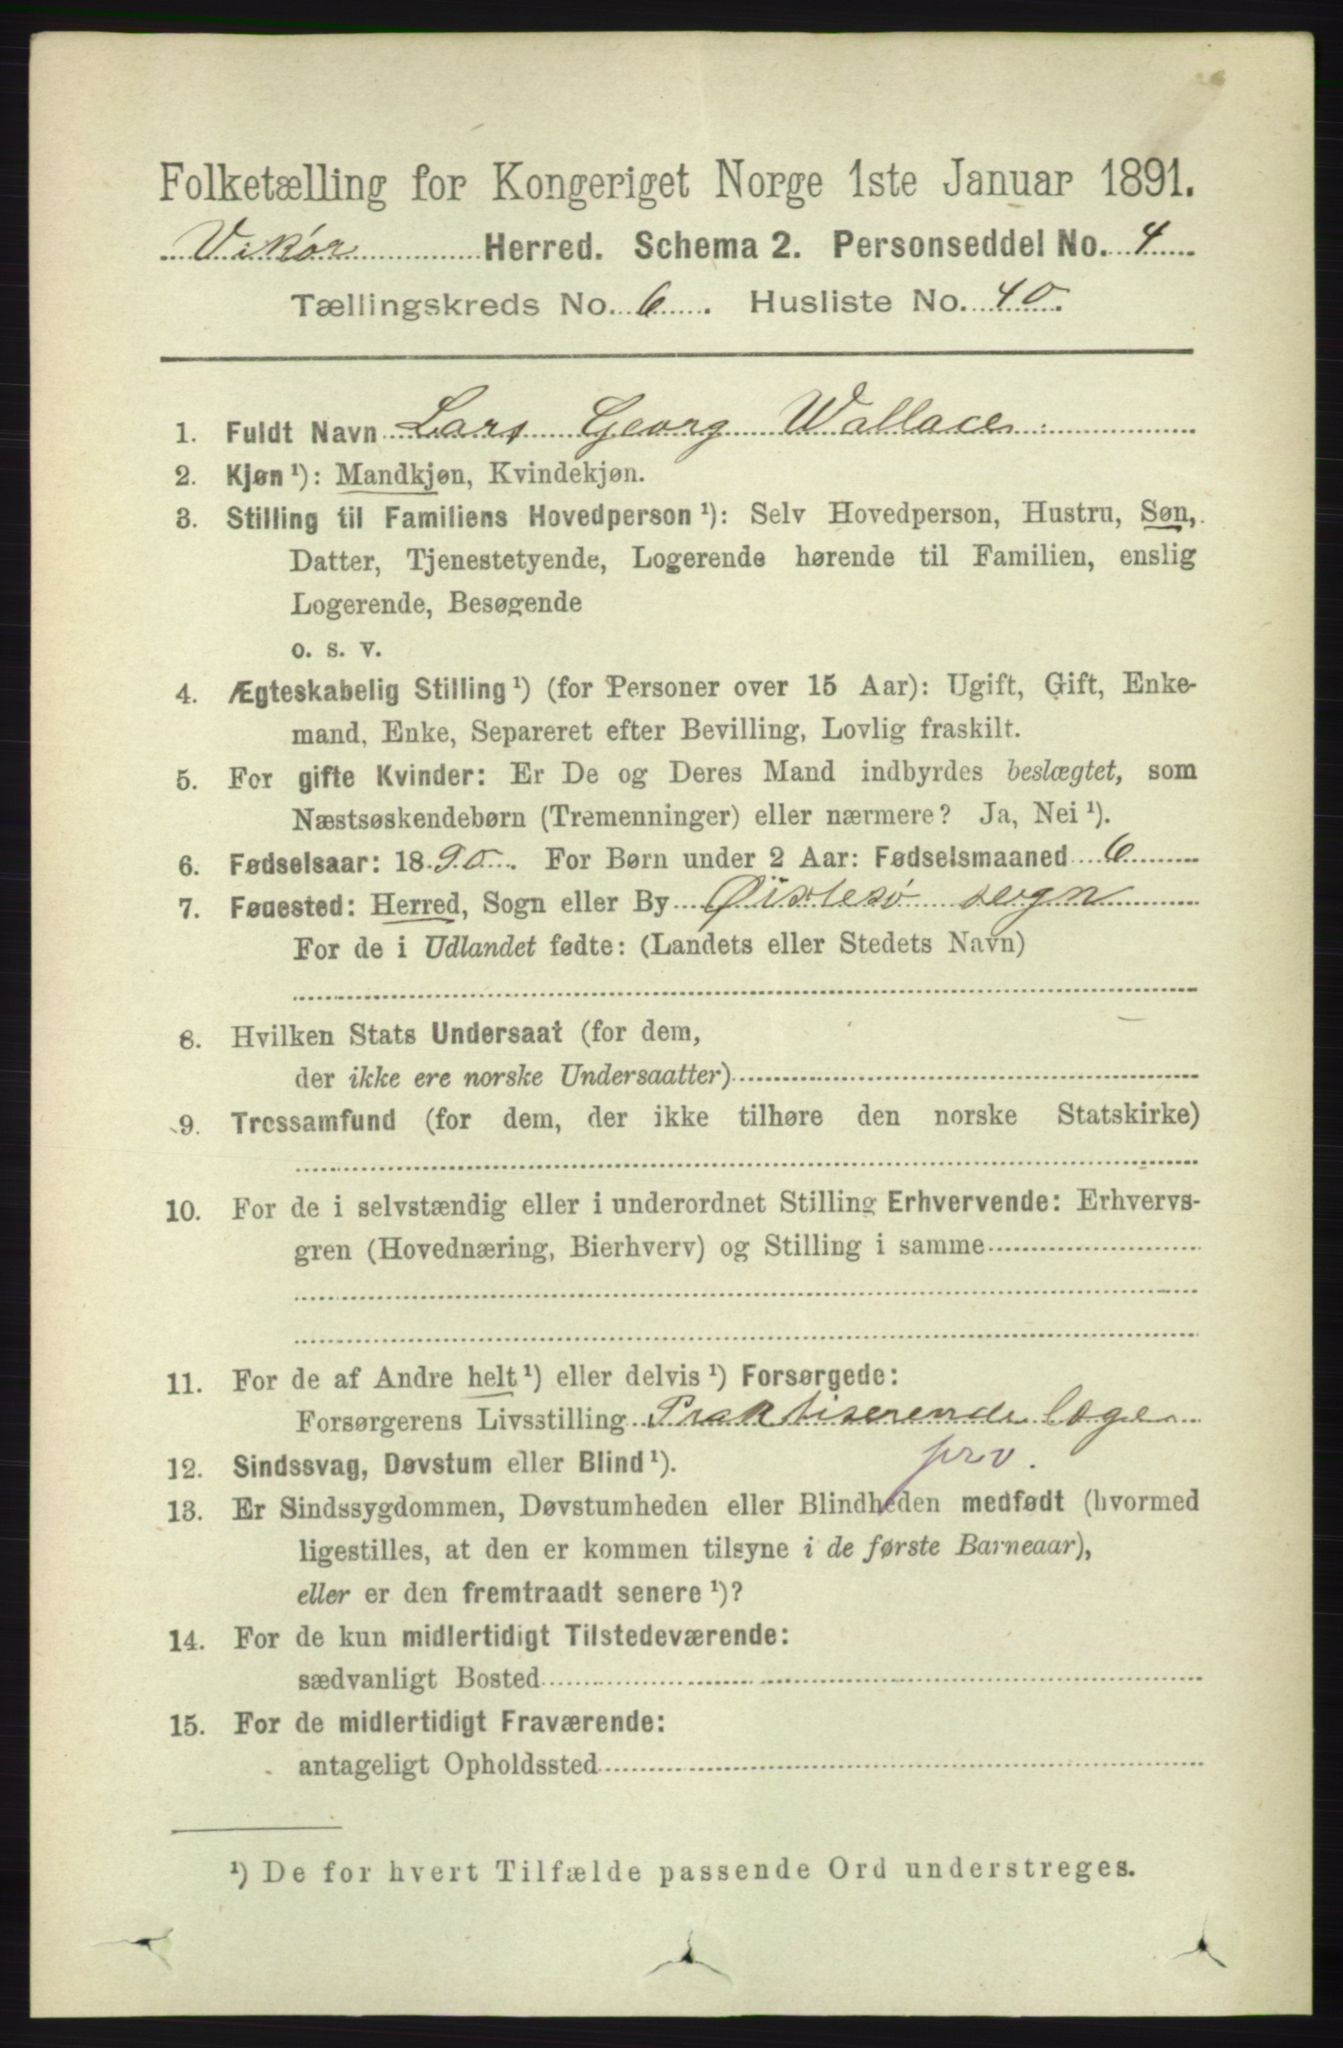 Folketælling for Kongeriget Norge 1ste Januar 1891.
Vikør Herred. Schema 2. Personseddel No. 4
Tællingskreds No. 6. Husliste No. 40.
1. Fuldt Navn Lars Georg Wallace
2. Kjøn ¹): Mandkjøn, Kvindekjøn.
3. Stilling til Familiens Hovedperson ¹): Selv Hovedperson, Hustru, Søn,
Datter, Tjenestetyende, Logerende hørende til Familien, enslig
Logerende, Besøgende
o. s. v.
4. Ægteskabelig Stilling ¹) (for Personer over 15 Aar): Ugift, Gift, Enke-
mand, Enke, Separeret efter Bevilling, Lovlig fraskilt.
5. For gifte Kvinder: Er De og Deres Mand indbyrdes beslægtet, som
Næstsøskendebørn (Tremenninger) eller nærmere? Ja, Nei ¹).
6. Fødselsaar: 1890. For Børn under 2 Aar: Fødselsmaaned 6
7. Føuested: Herred, Sogn eller By Øistesø sogn
For de i Udlandet fødte: (Landets eller Stedets Navn)
8. Hvilken Stats Undersaat (for dem,
der ikke ere norske Undersaatter)
9. Trossamfund (for dem, der ikke tilhøre den norske Statskirke)
10. For de i selvstændig eller i underordnet Stilling Erhvervende: Erhvervs-
gren (Hovednæring, Bierhverv) og Stilling i samme
11. For de af Andre helt ¹) eller delvis ¹) Forsørgede:
Forsørgerens Livsstilling Praktiserende læge
prv.
12. Sindssvag, Døvstum eller Blind ¹).
13. Er Sindssygdommen, Døvstumheden eller Blindheden medfødt (hvormed
ligestilles, at den er kommen tilsyne i de første Barneaar),
eller er den fremtraadt senere ¹)?
14. For de kun midlertidigt Tilstedeværende:
sædvanligt Bosted
15. For de midlertidigt Fraværende:
antageligt Opholdssted
¹) De for hvert Tilfælde passende Ord understreges.